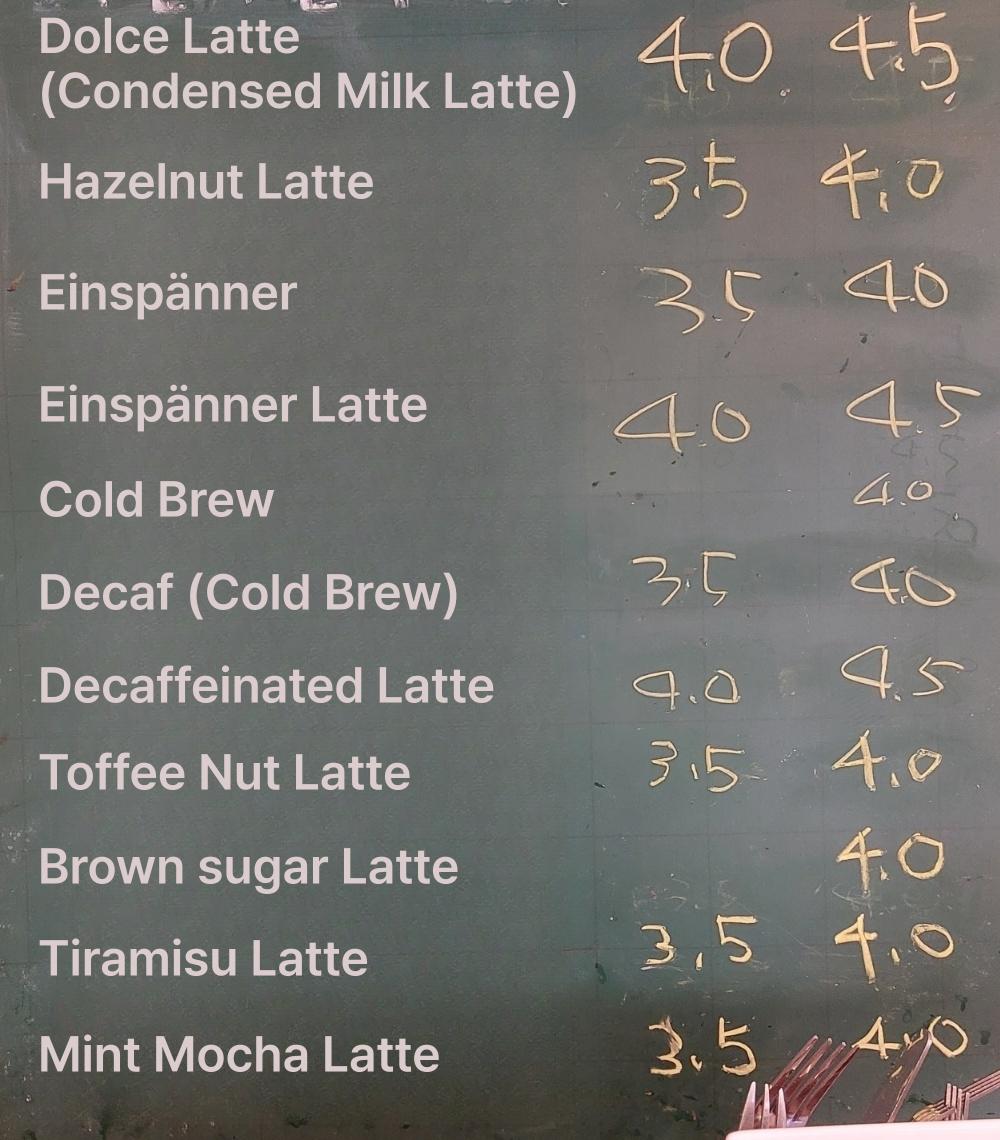 Dolce Latte 4.0 4.5
(Condensed Milk Latte)
Hazelnut Latte 3.5 4.0
Einspänner 3.5 4.0
Einspänner Latte 4.0 4.5
Cold Brew 4.0
Decaf (Cold Brew) 3.5 4.0
Decaffeinated Latte 4.0 4.5
Toffee Nut Latte 3.5 4.0
Brown sugar Latte 4.0
Tiramisu Latte 3.5 4.0
Mint Mocha Latte 3.5 4.0